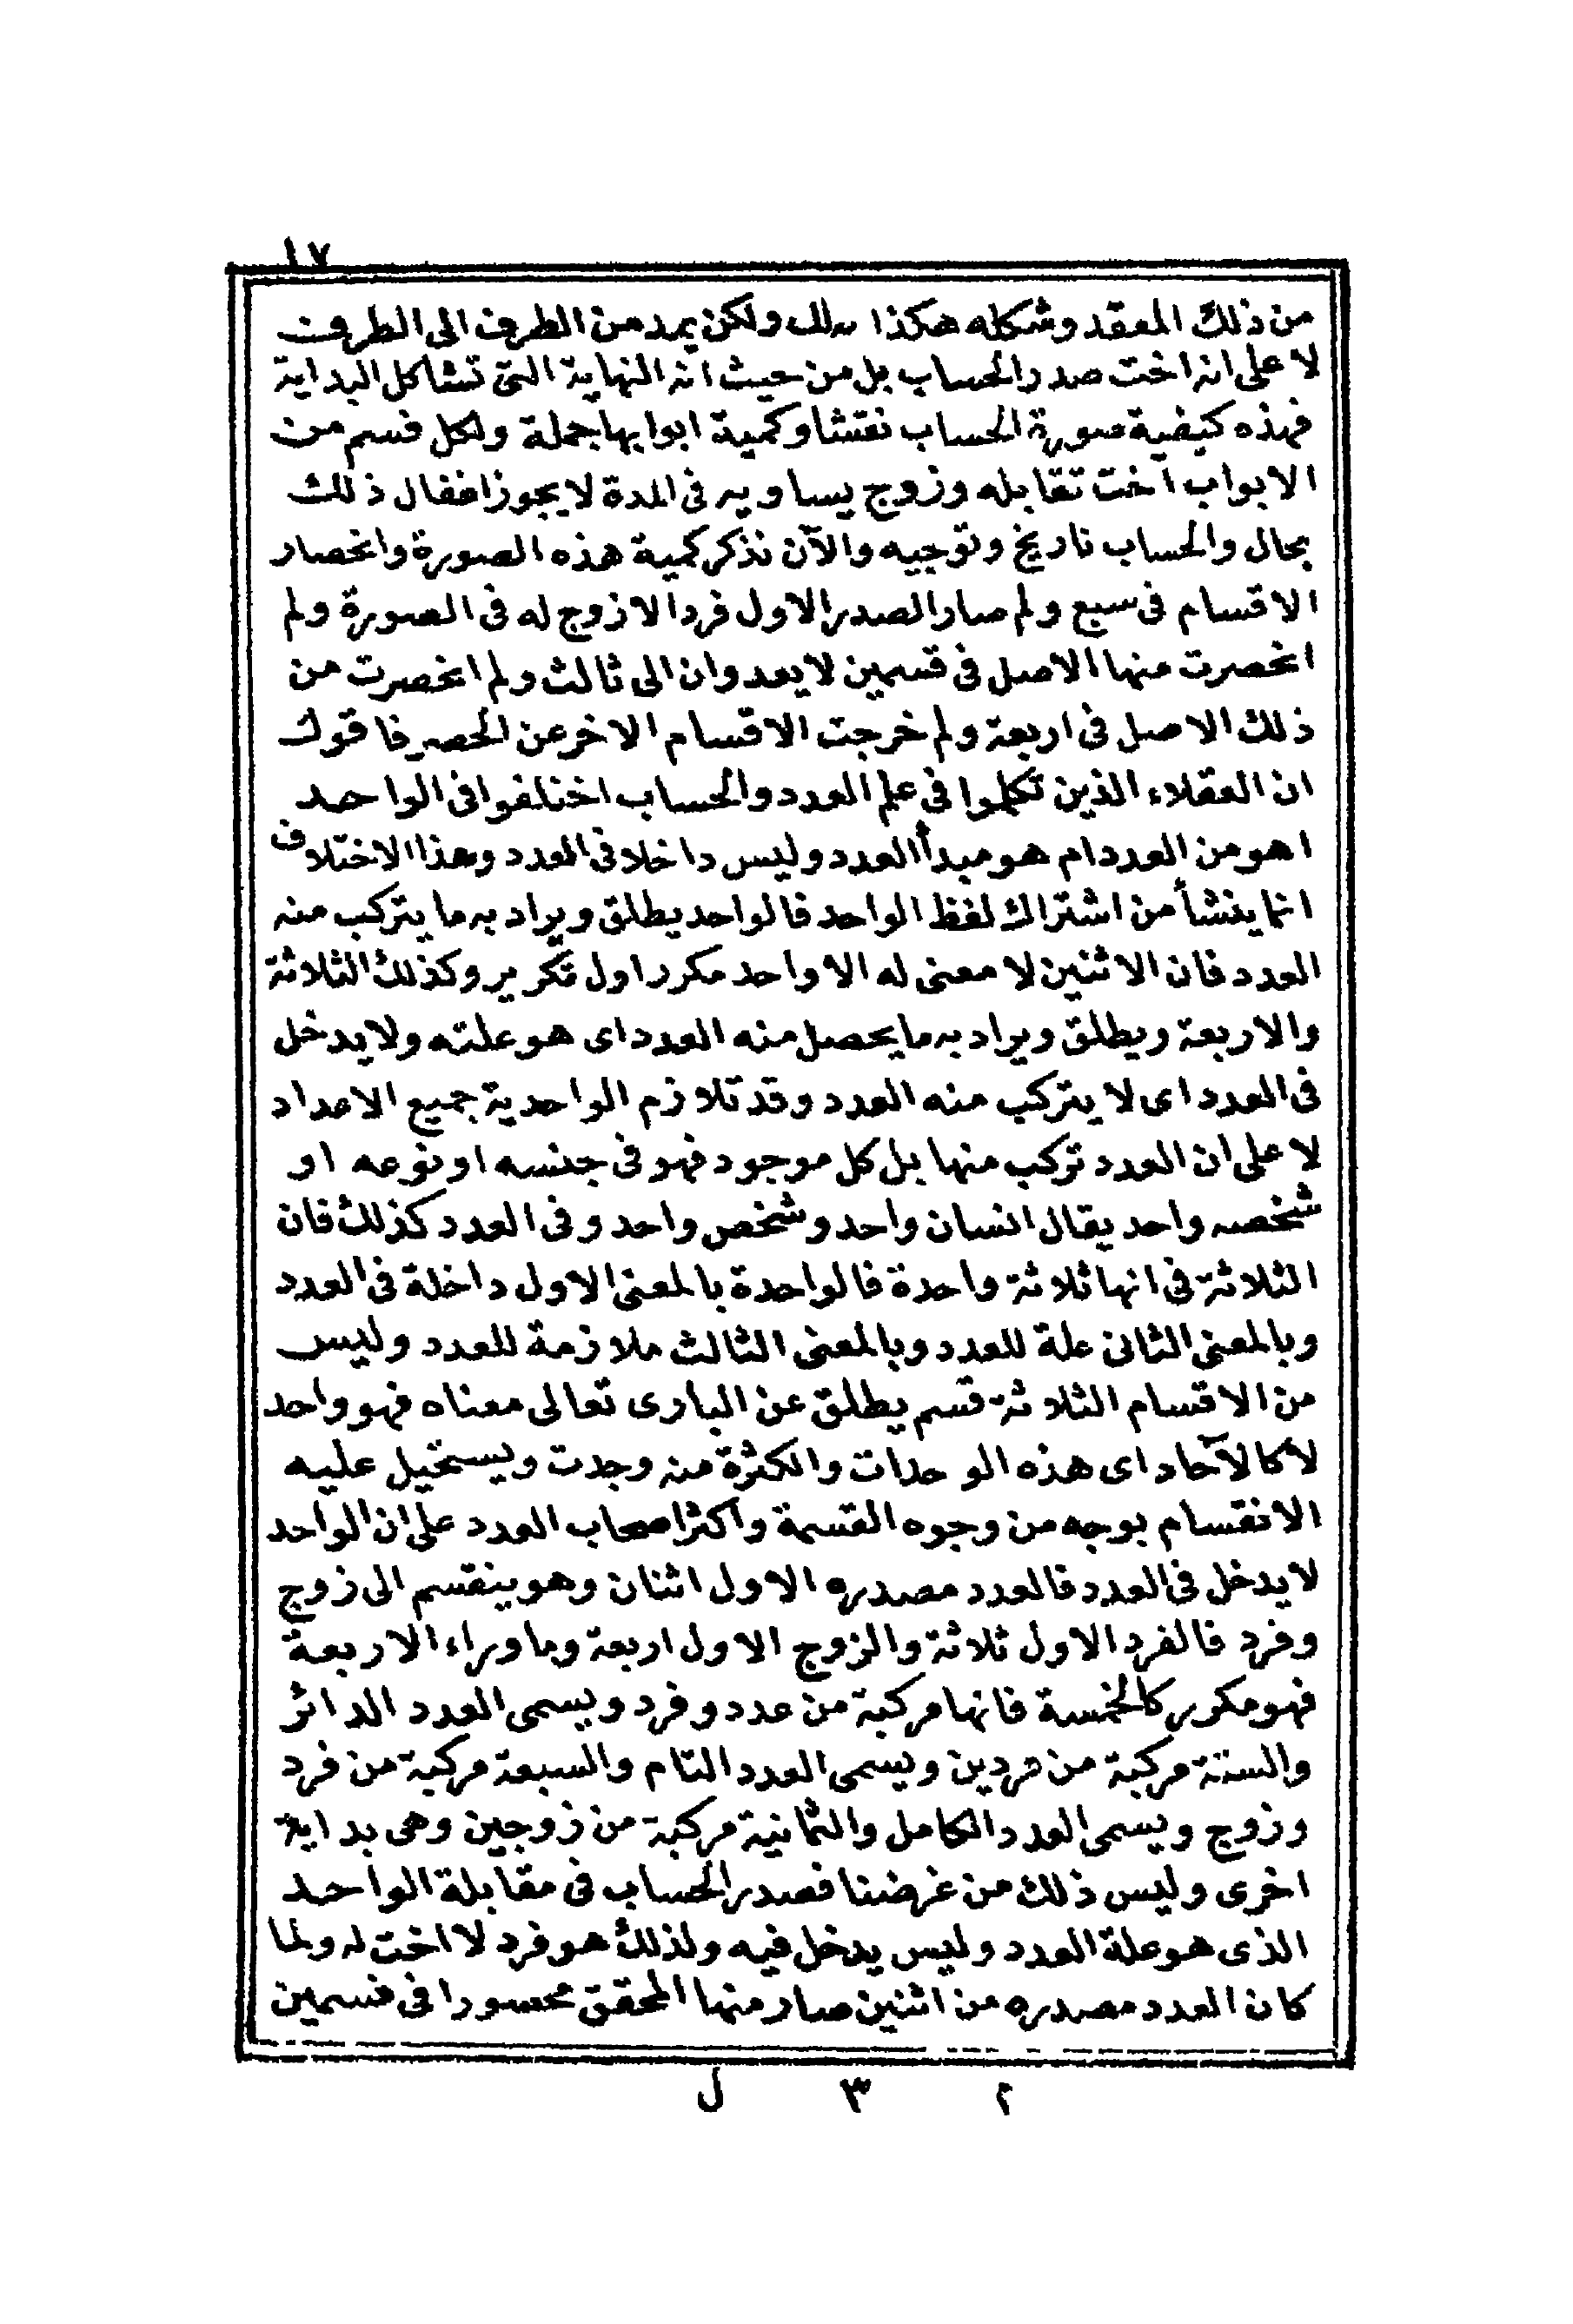 ١٧
من ذلك المعقد وشكله هكذا ولكن يمد من الطرف الى الطرف
لا على انه اخت صدر الحساب بل من حيث انه النهاية التى تشاكل البداية
فهذه كيفية صورة الحساب نقشا وكمية ابوابها جملة ولكل قسم من
الابواب اخت تقابله وزوج يساويه فى المدة لا يجوز اغفال ذلك
بحال والحساب تاريخ وتوجيه والآن نذكر كمية هذه الصورة وانحصار
الاقسام فى سبع ولم صار الصدر الاول فردا لا زوج له فى الصورة ولم
انحصرت منها الاصل فى قسمين لا يعدوان الى ثالث ولم انحصرت من
ذلك الاصل فى اربعة ولم خرجت الاقسام الاخر عن الحصر فاقول
ان العقلاء الذين تكلموا فى علم العدد والحساب اختلفوا فى الواحد
اهو من العدد ام هو مبدأ العدد وليس داخلا فى العدد وهذا الاختلاف
انما ينشأ من اشتراك لفظ الواحد فالواحد يطلق ويراد به ما يتركب منه
العدد فان الاثنين لا معنى له الا واحد مكرر اول تكرير وكذلك الثلاثة
والاربعة ويطلق ويراد به ما يحصل منه العدد اى هو علته ولا يدخل
فى العدد اى لا يتركب منه العدد وقد تلازم الواحدية جميع الاعداد
لا على ان العدد تركب منها بل كل موجود فهو فى جنسه او نوعه او
شخصه واحد يقال انسان واحد وشخص واحد وفى العدد كذلك فان
الثلاثة فى انها ثلاثة واحدة فالواحدة بالمعنى الاول داخلة فى العدد
وبالمعنى الثانى علة للعدد وبالمعنى الثالث ملازمة للعدد وليس
من الاقسام الثلاثة قسم يطلق عن البارى تعالى معناه فهو واحد
لا كالآحاد اى هذه الوحدات والكثرة منه وجدت ويستحيل عليه
الانقسام بوجه من وجوه القسمة واكثر اصحاب العدد على ان الواحد
لا يدخل فى العدد فالعدد مصدره الاول اثنان وهو ينقسم الى زوج
وفرد فالفرد الاول ثلاثة والزوج الاول اربعة وما وراء الاربعة
فهو مكرر كالخمسة فانها مركبة من عدد وفرد ويسمى العدد الدائر
والستة مركبة من فردين ويسمى العدد التام والسبعة مركبة من فرد
وزوج ويسمى العدد الكامل والثمانية مركبة من زوجين وهى بداية
اخرى وليس ذلك من غرضنا فصدر الحساب فى مقابلة الواحد
الذى هو علة العدد وليس يدخل فيه ولذلك هو فرد لا اخت له ولما
كان العدد مصدره من اثنين صار منها المحقق محصورا فى قسمين
م ٣ ل